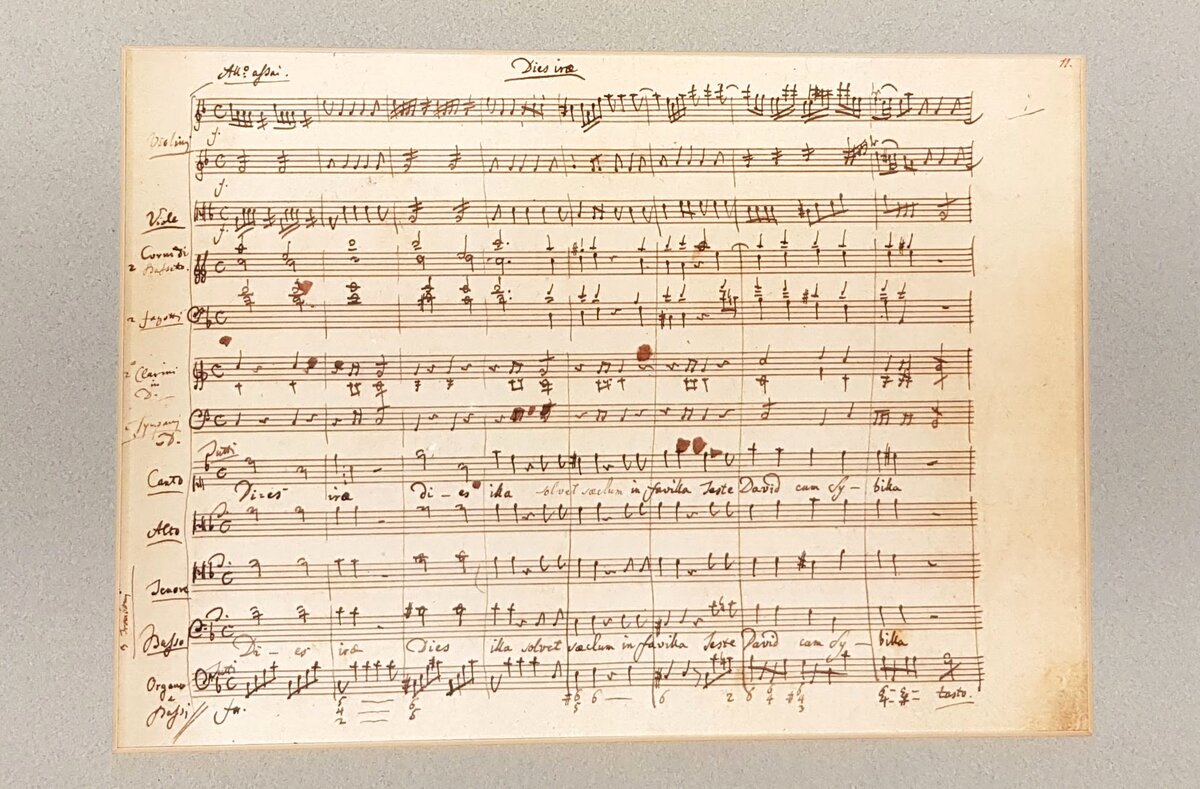 All:o assai.
Dies iræ
11.
Violini
f.
f.
Viole
f.
2 Corni di
Bassetto.
2 fagotti
2 Clarini
in
D.
Tympani
D.
Tutti
Canto
Di-es iræ Di-es illa solvet sæclum in favilla Teste David cum Sy-billa
Alto
Tenore
Basso
Di-es iræ Dies illa solvet sæclum in favilla Teste David cum Sy-billa
Tutti
Organo
e
Bassi
6 4 2
#6 5 6
6
2
tasto.